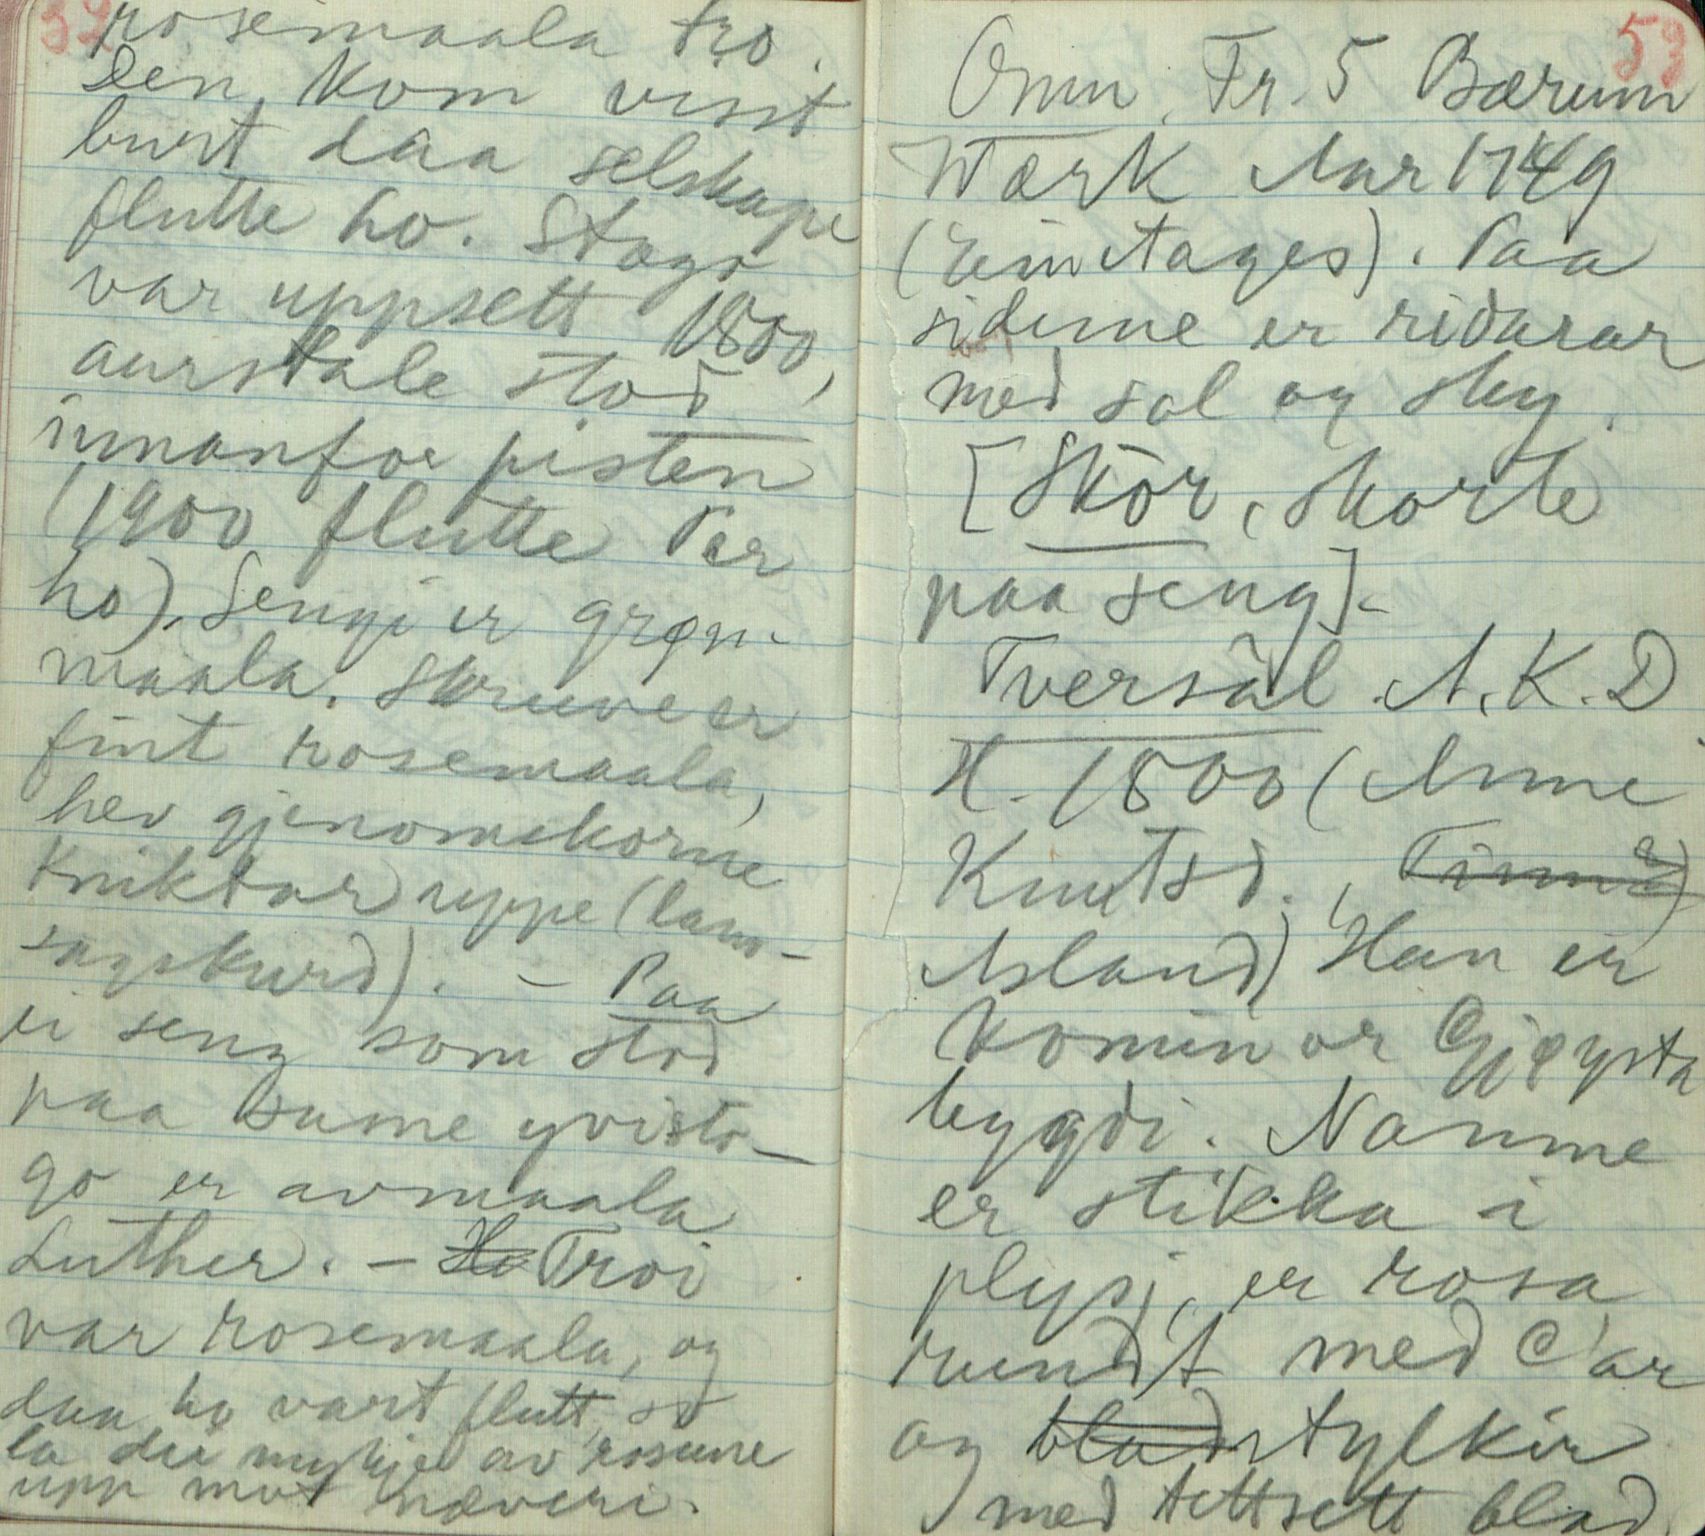 52
rosemaala tro.
Den kom visst
burt daa selskape
flutte ho. Stogo
var uppsett 1800,
aurstale stod
innanfor pisten
(1900 flutte Per
ho). Sengi er grøn-
maala. Skruve er
fint rosemaala,
hev gjenomskorne
kniktar uppe (lauv-
sagskurd). - Paa
ei seng som stod
paa same yvisto-
go er avmaala
Luther. - Ho Troi
var rosemaala, og
daa ho vart flutt, so
la dei mykje av rosune
upp mot næveri.
53
Omn. Fr. 5 Bærum
Værk Aar 1749
(einetages). Paa
sidune er ridarar
med sol og sky.
[Skòr, skorte
paa seng].
Tversâl A. K. D
H. 1800 (Anne
Knutsd.,
Asland) Han er
komin or Gjøysta
bygdi. Namne
er stikka i
plysj, er rosa
rundt med C'ar
og blad stylkir
med tettsett blad